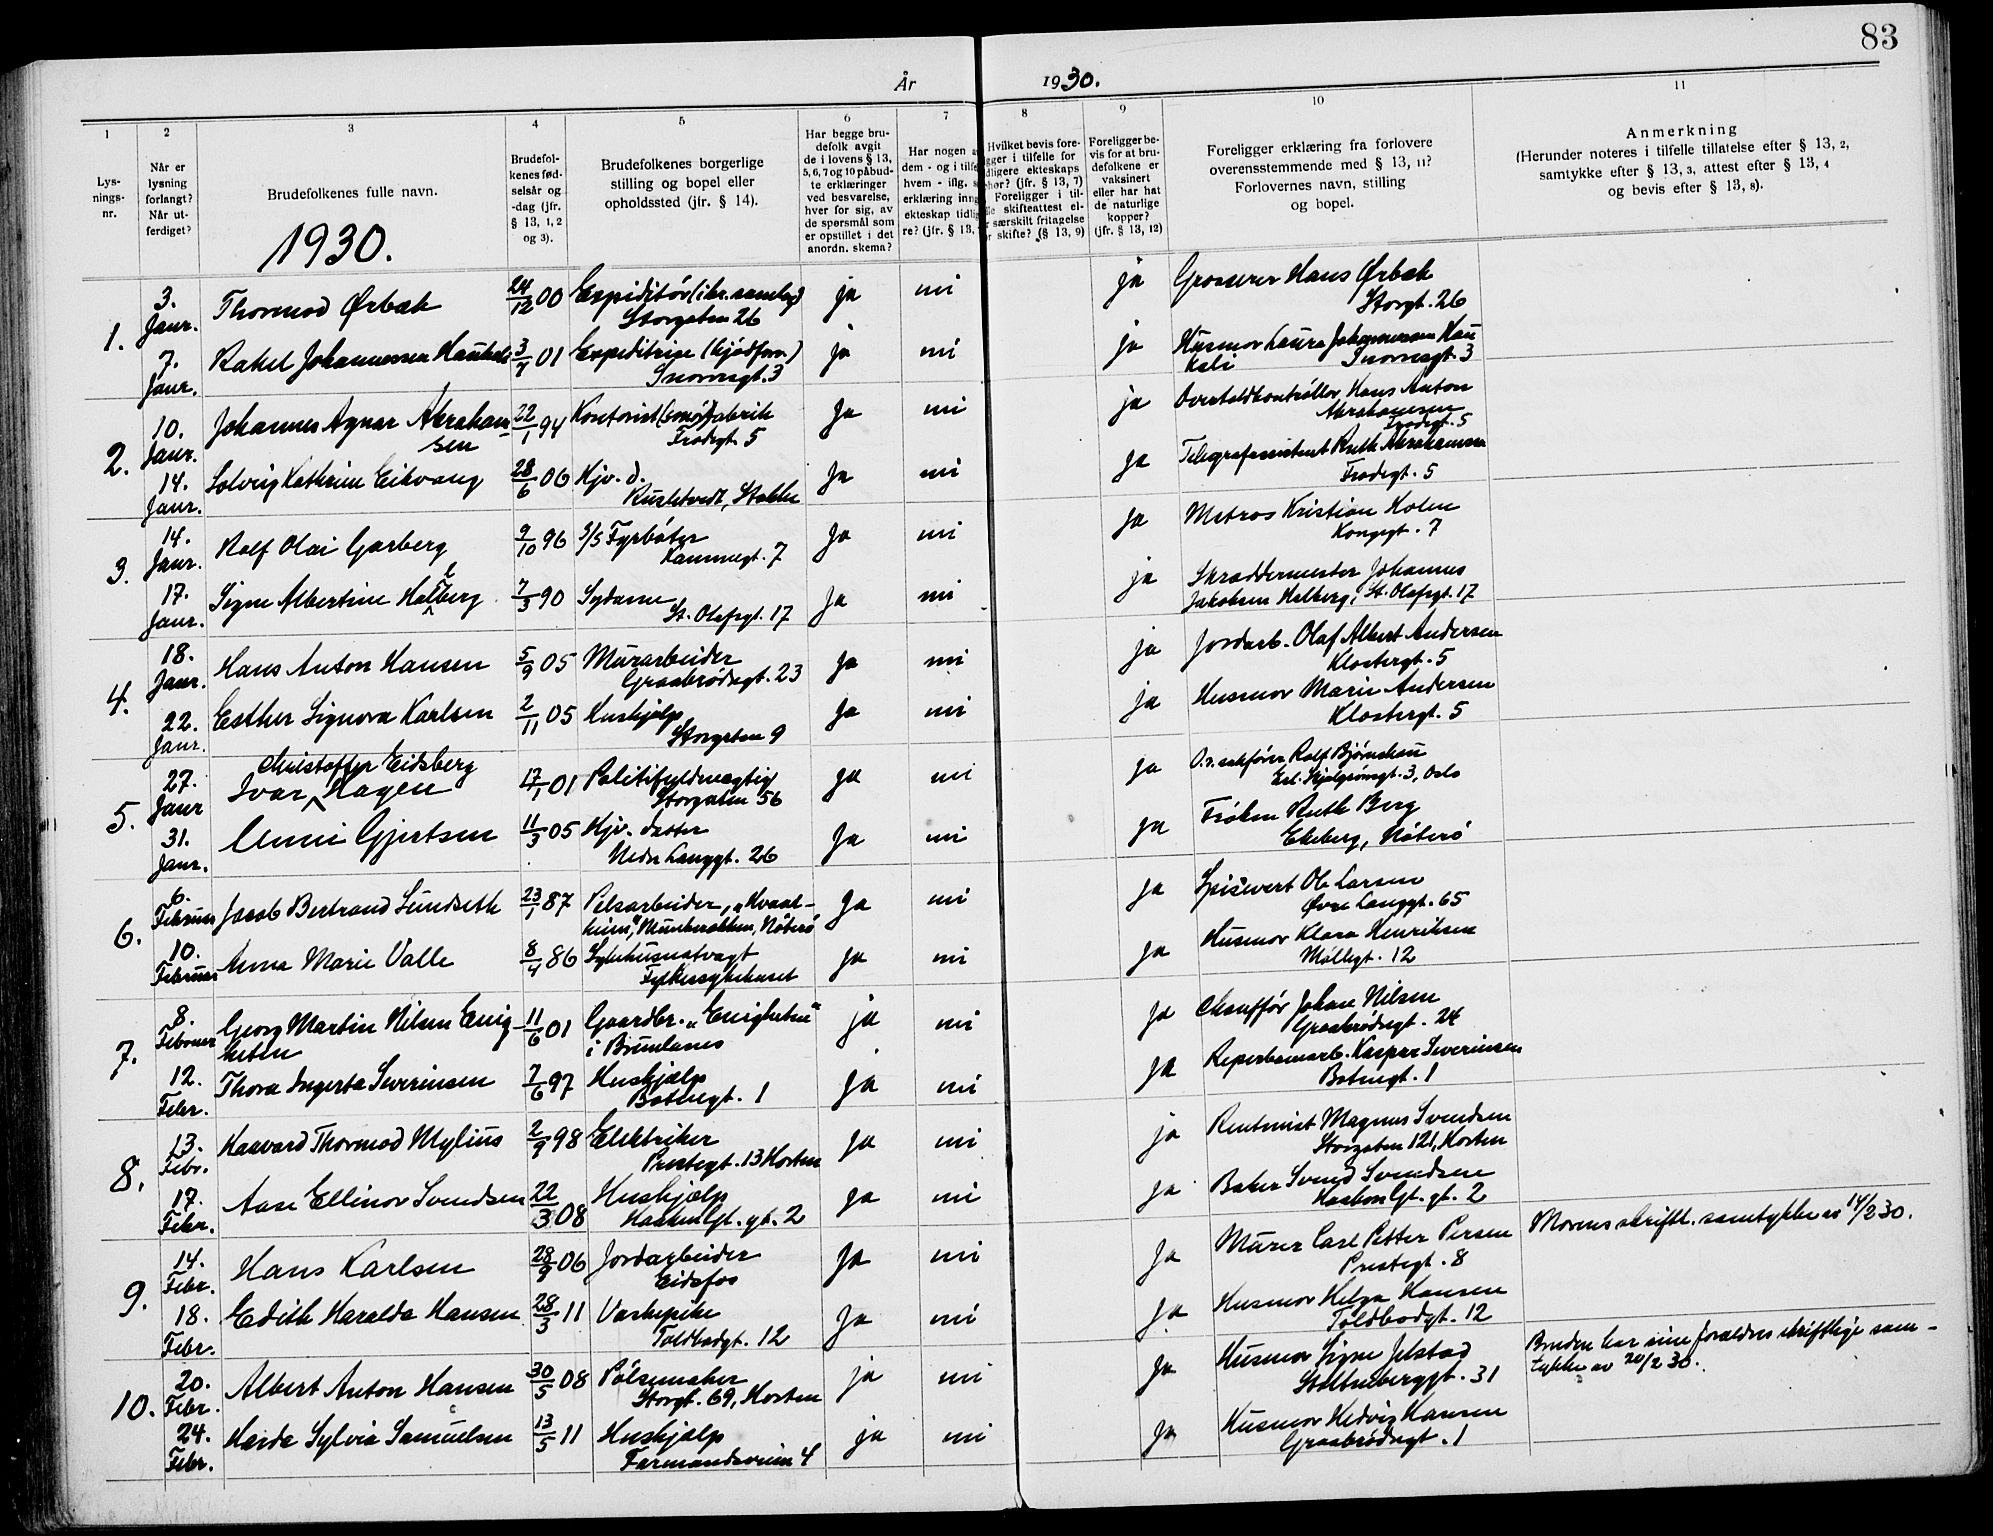 83
År 1930.
1 2 3 4 5 6 7 8 9 10 11
Lys-
nings-
nr.
Når er
lysning
forlangt?
Når ut-
ferdiget?
Brudefolkenes fulle navn.
Brudefol-
kenes fød-
selsår og
-dag (jfr.
§ 13, 1, 2
og 3).
Brudefolkenes borgerlige
stilling og bopel eller
opholdssted (jfr. § 14).
Har begge bru-
defolk avgit
de i lovens § 13,
5, 6, 7 og 10 påbud-
te erklæringer
ved besvarelse,
hver for sig, av
de spørsmål som
er opstillet i det
anordn. skema?
Har nogen a
dem - og i tilfe
hvem - iflg. s
erklæring inng
ekteskap tidlig
re? (jfr. § 13,
Hvilket bevis fore-
gger i tilfelle for
dligere ekteskaps
hør? (jfr. § 13, 7)
Foreligger i til-
le skifteattest el-
r særskilt fritagelse
or skifte? (§ 13, 9)
Foreligger be-
vis for at bru-
defolkene er
vaksinert
eller har hat
de naturlige
kopper?
(jfr. § 13, 12)
Foreligger erklæring fra forlovere
overensstemmende med § 13, 11?
Forlovernes navn, stilling
og bopel.
Anmerkning
(Herunder noteres i tilfelle tillatelse efter § 13, 2,
samtykke efter § 13, 3, attest efter § 13, 4
og bevis efter § 13, 8).
1930.
1. 3. Janr. Thormod Ørbæk 24/12 00 Expiditør (i kr. samlag) ja nei ja Grosserer Hans Ørbæk
Storgaten 26 Storgt. 26
7. Janr. Rakel Johannessen Haukeli 3/7 01 Expeditrise (kjødforr.) ja nei ja Husmor Laura Johannessen Hau
Snorresgt. 3 keli Snorresgt. 3
2. 10. Janr. Johannes Agnar Abraham- 22/1 94 Kontorist (smørfabrik ja nei ja Overtoldkontrollør Hans Anton
sen Frodegt. 5 Abrahamsen
Frodegt. 5
14. Janr. Solveig Kathrine Eikvang 28/6 06 Hjv. d. ja nei ja Telegrafassistent Ruth Abrahamsen
Stokke Frodegt. 5
3. 14. Janr. Rolf Olai Garberg 9/10 96 S/S Fyrbøter ja nei ja Matros Kristian Holm
Kammegt. 7 Kongegt. 7
17. Janr. Signe Albertine Helberg 7/3 90 Sydame ja nei ja Skræddermester Johannes
St. Olafsgt. 17 Jakobsen Helberg, St. Olafsgt. 17
4. 18. Janr. Hans Anton Hansen 5/9 05 Murarbeider ja nei ja Jordarb. Olaf Albert Andersen
Graabrødregt. 23 Klostergt. 5
22. Janr. Esther Signora Karlsen 2/11 05 Hushjælp ja nei ja Husmor Marie Andersen
Storgaten 9 Klostergt. 5
Christoffer Eidsberg
5. 27. Janr Ivar Hagen 17/1 01 Politifuldmægtig ja nei ja O.r. sakfører Rolf Bjørnskau
Storgaten 56 Erl. Skjalgsønsgt. 3, Oslo
31. Janr. Unni Gjertsen 11/3 05 Hjv. datter ja nei ja Frøken Ruth Berg
Nedre Langgt. 26 Ekeberg, Nøterø
6. 6. Februar Jacob Bertrand Sundseth 23/1 87 Pelsarbeider, „Kvaal- ja nei ja Spisevert Ole Larsen
heim", Munkerekken, Nøterø Øvre Langgt. 65
10. Februar Anna Marie Valle 8/4 86 Sykehusnatvagt ja nei ja Husmor Klara Henriksen
Fylkessykehuset Møllegt. 12
7. 8. Februar Georg Martin Nilsen Enig- 11/6 01 Gaardbr. „Enigheten" ja nei ja Chauffør Johan Nilsen
heten i Brunlanes Graabrødregt. 24
12. Febr. Thora Ingerta Severinsen 7/6 97 Hushjælp ja nei ja Reperbanearb. Kaspar Severinsen
Batterigt. 1 Batterigt. 1
8. 13. Febr. Haavard Thormod Mylius 2/9 98 Elektriker ja nei ja Rentenist Magnus Svendsen
Prestegt. 13 Horten Storgaten 121, Horten
17. Febr. Aase Ellinor Svendsen 22/3 08 Hushjælp ja nei ja Baker Svend Svendsen
Haakon Gt. gt. 2 Haakon Gt. gt. 2
9. 14. Febr. Hans Karlsen 28/9 06 Jordarbeider ja nei ja Murer Carl Petter Persen Morens skriftl. samtykke av 14/2 30.
Eidsfos Prestegt. 8
18. Febr. Edith Haralda Hansen 28/3 11 Vaskepike ja nei ja Husmor Helga Hansen
Toldbodgt. 12 Toldbodgt. 12
10. 20. Febr. Albert Anton Hansen 30/5 08 Pølsemaker ja nei ja Husmor Signe Jelstad Bruden har sine forældres skriftlige sam-
Storgt. 69, Horten Stoltenberggt. 31 tykke av 20/2 30.
24. Febr. Harda Sylvia Samuelsen 13/5 11 Hushjælp ja nei ja Husmor Hedvig Hansen
Farmandsveien 4 Graabrødregt. 1